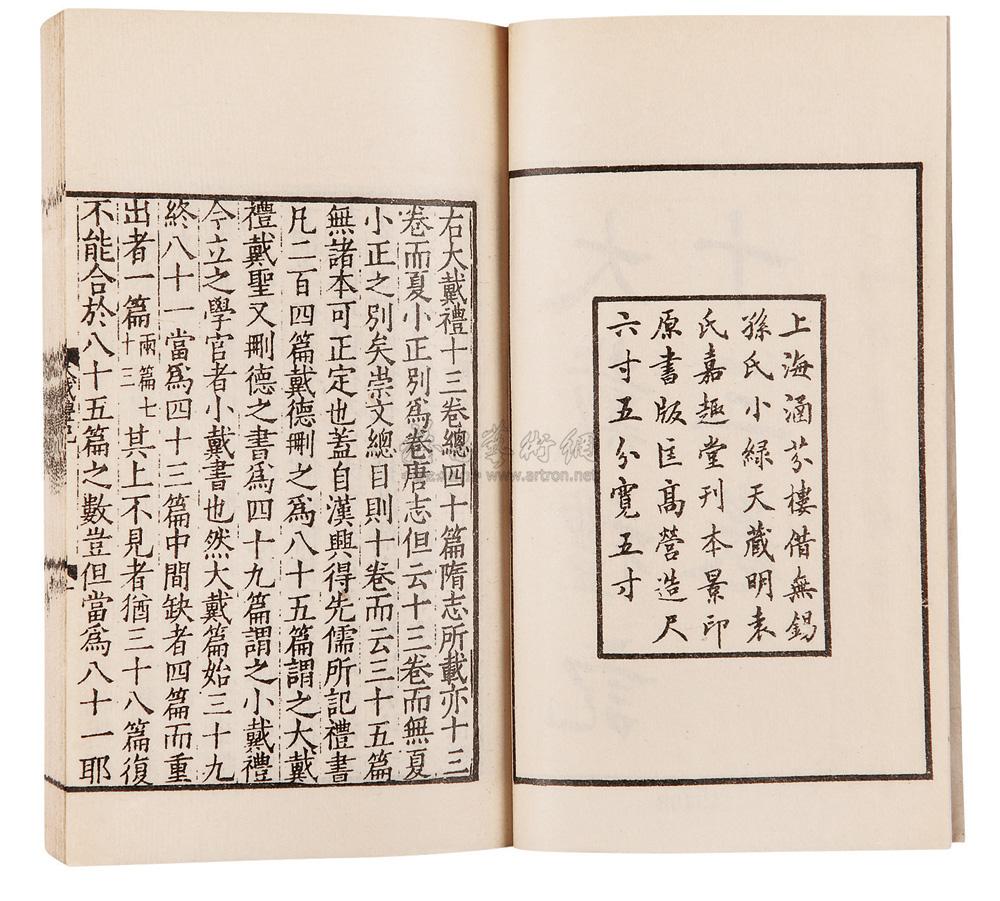 上海涵芬樓借無錫
孫氏小綠天藏明袁
氏嘉趣堂刊本景印
原書版匡高營造尺
六寸五分寬五寸
右大戴禮十三卷總四十篇隋志所載亦十三
卷而夏小正別爲卷唐志但云十三卷而無夏
小正之別矣崇文總目則十卷而云三十五篇
無諸本可正定也蓋自漢興得先儒所記禮書
凡二百四篇戴德刪之爲八十五篇謂之大戴
禮戴聖又刪德之書爲四十九篇謂之小戴禮
今立之學官者小戴書也然大戴篇始三十九
終八十一當爲四十三篇中間缺者四篇而重
出者一篇兩篇七十三其上不見者猶三十八篇復
不能合於八十五篇之數豈但當爲八十一耶
www.artron.net